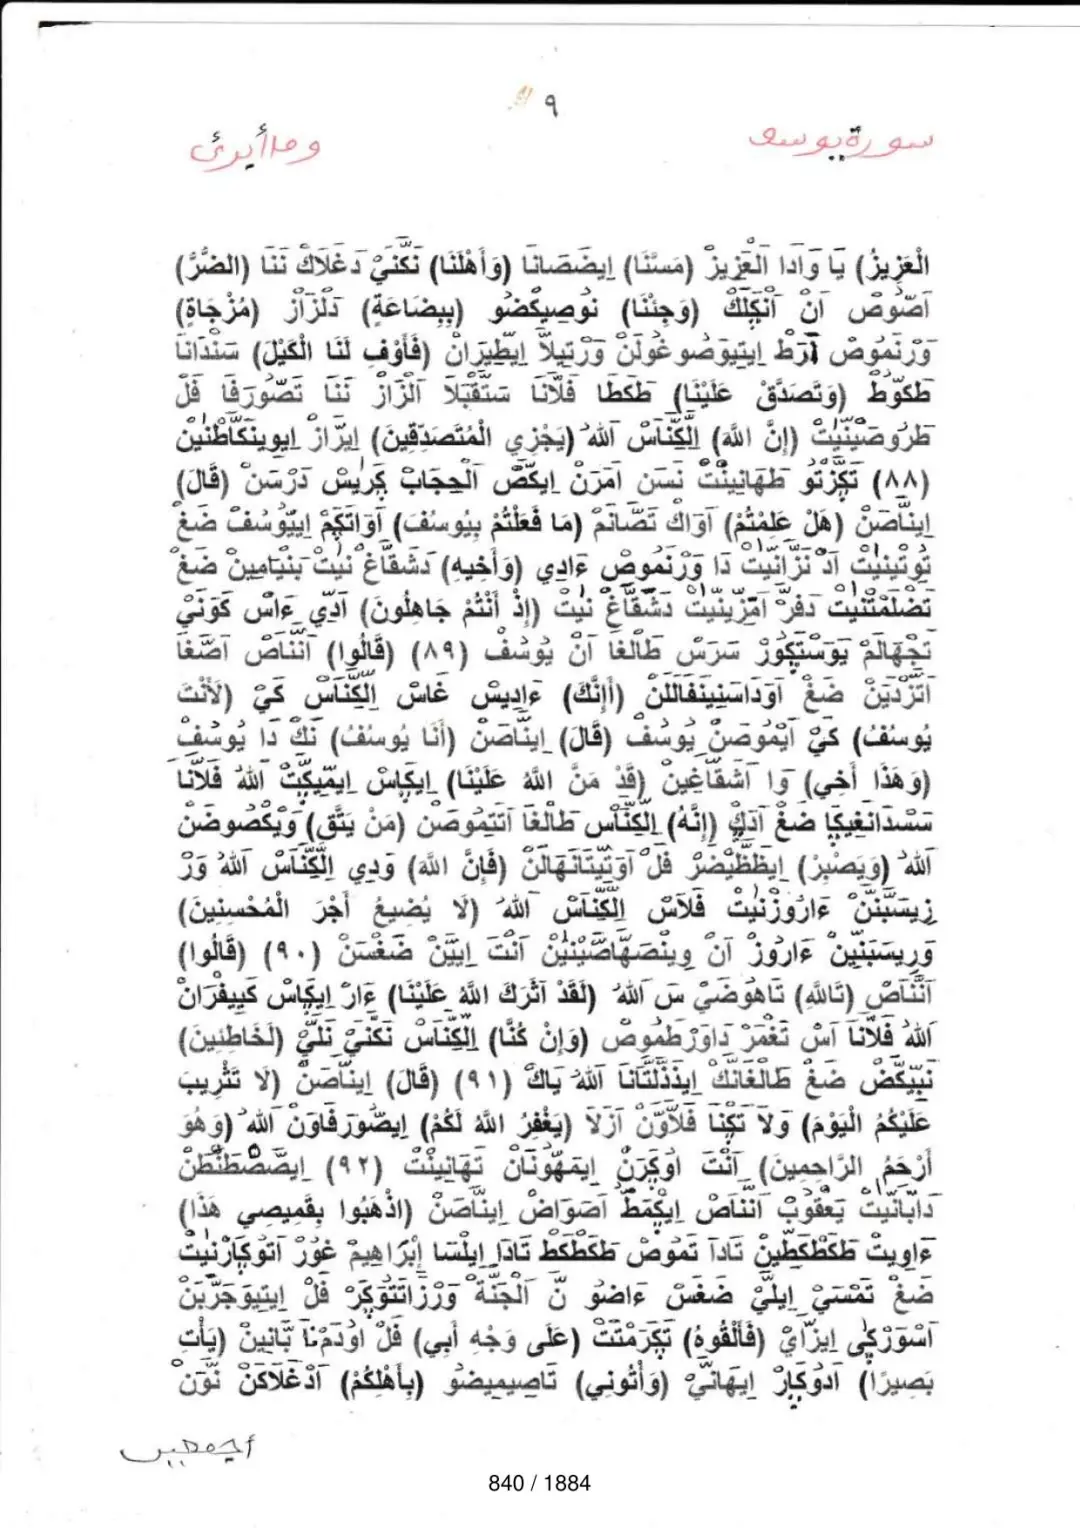 ٩
سورة يوسف
وما أبرئ
الْعَزِيزُ) يَا وَادَا الْعَزِيزْ (مَسَّنَا) اِيضَصَانَا (وَأَهْلَنَا) نَكَّنَيْ دَغَلَاكْ نَنَا (الضُّرُّ)
اَصُّوصْ اَنْ اَنْكَلَكْ (وَجِئْنَا) نُوصِيكْضُو (بِبِضَاعَةٍ) دَلْزَازْ (مُزْجَاةٍ)
وَرْنَمُوصْ اَرَطْ اِيتِيوَضُوغُولَنْ وَرْتِيلَا اِيطِيرَانْ (فَأَوْفِ لَنَا الْكَيْلَ) سَنْدَانَا
طَكُّوطْ (وَتَصَدَّقْ عَلَيْنَا) طَكَطَا فَلَّانَا سَتَقْبَلَا اَلْزَازْ نَنَا تَصُّورَفَا فَلْ
طَرُوصْنِيتْ (إِنَّ اللَّهَ) اِلِكْنَاسْ اللهُ (يَجْزِي الْمُتَصَدِّقِينَ) اِيرَازْ اِيوِينَكَاطَنِينْ
(٨٨) تَكَزْتُو طَهَانِينْتْ نَسَنْ اَمَرَنْ اِيكَّصْ اَلْحِجَابْ كَرِيسْ دَرْسَنْ (قَالَ)
اِينَّاصَنْ (هَلْ عَلِمْتُمْ) اَوَاكْ تَصَّانَمْ (مَا فَعَلْتُمْ بِيُوسُفَ) اَوَاتَكَمْ اِييُوسُفْ ضَغْ
تُوتِينِيتْ اَدْ نَزَّانِيتْ دَا وَرْنَمُوصْ ءَادِي (وَأَخِيهِ) دَشَقَّاغْ نِيتْ بَنْيَامِينْ ضَغْ
تَضْلَمْتَنِيتْ دَفَرْ اَمَزِينِيتْ دَشَقَّاغْ نِيتْ (إِذْ أَنْتُمْ جَاهِلُونَ) اَدِّي ءَاسْ كَوَنَيْ
تَجْهَالَمْ يَوَسْتِكُورْ سَرَسْ طَالَغَا اَنْ يُوسُفْ (٨٩) (قَالُوا) اَنَّنَاصْ اَصَّغَا
اَتَزْدَيَنْ ضَغْ اَوَدَاسَنِينَفَالَلَنْ (أَإِنَّكَ) ءَادِيسْ غَاسْ اِلِكَّنَاسْ كَيْ (لَأَنْتَ
يُوسُفُ) كَيْ اَيْمُوصَنْ يُوسُفْ (قَالَ) اِينَّاصَنْ (أَنَا يُوسُفُ) نَكْ دَا يُوسُفْ
(وَهَذَا أَخِي) وَا اَشَقَّاغِينْ (قَدْ مَنَّ اللَّهُ عَلَيْنَا) اِيكَاسْ اِيمِيكَتْ اللهُ فَلَّانَا
سَسْدَانَغِيكَا ضَغْ اَدَكْ (إِنَّهُ) اِلِكَّنَاسْ طَالَغَا اَتَتِمُوصَنْ (مَنْ يَتَّقِ) وَيَكْصُوضَنْ
اللهُ (وَيَصْبِرْ) اِيظَظِيضَرْ فَلْ اَوَتِيتَانَهَالَنْ (فَإِنَّ اللَّهَ) وَدِي اِلِكَّنَاسْ اللهُ وَرْ
زِيسَبَنَنْ ءَارُوزْنِيتْ فَلَاسْ اِلِكَّنَاسْ اللهُ (لَا يُضِيعُ أَجْرَ الْمُحْسِنِينَ)
وَرِيسَبَنِينْ ءَارُوزْ اَنْ وِينَصَهَاصَنِينْ اَنْتَ اِيَنْ ضَغْسَنْ (٩٠) (قَالُوا)
اَنَّنَاصْ (تَاللَّهِ) تَاهُوضَيْ سَ اللهُ (لَقَدْ آثَرَكَ اللَّهُ عَلَيْنَا) ءَارْ اِيكَاسْ كَيِيفْرَانْ
اللهُ فَلَّانَا اَسْ تَغْمَرْ دَاوَرْطَمُوصْ (وَإِنْ كُنَّا) اِلِكَّنَاسْ نَكَّنَيْ نَلَّيْ (لَخَاطِئِينَ)
نَبِيكَضْ ضَغْ طَالْغَانَكْ اِيذَذَلَتَانَا اللهُ يَاكْ (٩١) (قَالَ) اِينَّاصَنْ (لَا تَثْرِيبَ
عَلَيْكُمُ الْيَوْمَ) وَلَا تَكَنَا فَلَّاوَنْ اَزَلَا (يَغْفِرُ اللَّهُ لَكُمْ) اِيصُّورَفَاوَنْ اللهُ (وَهُوَ
أَرْحَمُ الرَّاحِمِينَ) اَنْتَ اَوْكَرَنْ اِيمَهُونَانْ تَهَانِينْتْ (٩٢) اِيصَّصْطَنْطَنْ
دَابَانِيتْ يَعْقُوبْ اَنَّنَاصْ اِيكْمَطْ اَصَوَاضْ اِينَّاصَنْ (اذْهَبُوا بِقَمِيصِي هَذَا)
ءَاوِيتْ طَكَطْكَطِينْ تَادَا تَمُوصْ طَكَطْكَطْ تَادَا اِيلْسَا إِبْرَاهِيمْ غُورْ اَتُوكَازْنِيتْ
ضَغْ تَمْسَيْ اِيلَيْ ضَغْسْ ءَاضُو نَ اَلْجَنَّةْ وَرْزَاتَتْوَكَرْ فَلْ اِيتِيوَجَرَّبَنْ
اَسْوَرْكَى اِيزَّايْ (فَأَلْقُوهُ) تَكَرَمْتَتْ (عَلَى وَجْهِ أَبِي) فَلْ اَوْدَمْنَا بَّانِينْ (يَأْتِ
بَصِيرًا) اَدُوكَازْ اِيهَانَيْ (وَأْتُونِي) تَاصِيمِيضُو (بِأَهْلِكُمْ) اَدْغَلَاكَنْ نَّوَنْ
840 / 1884